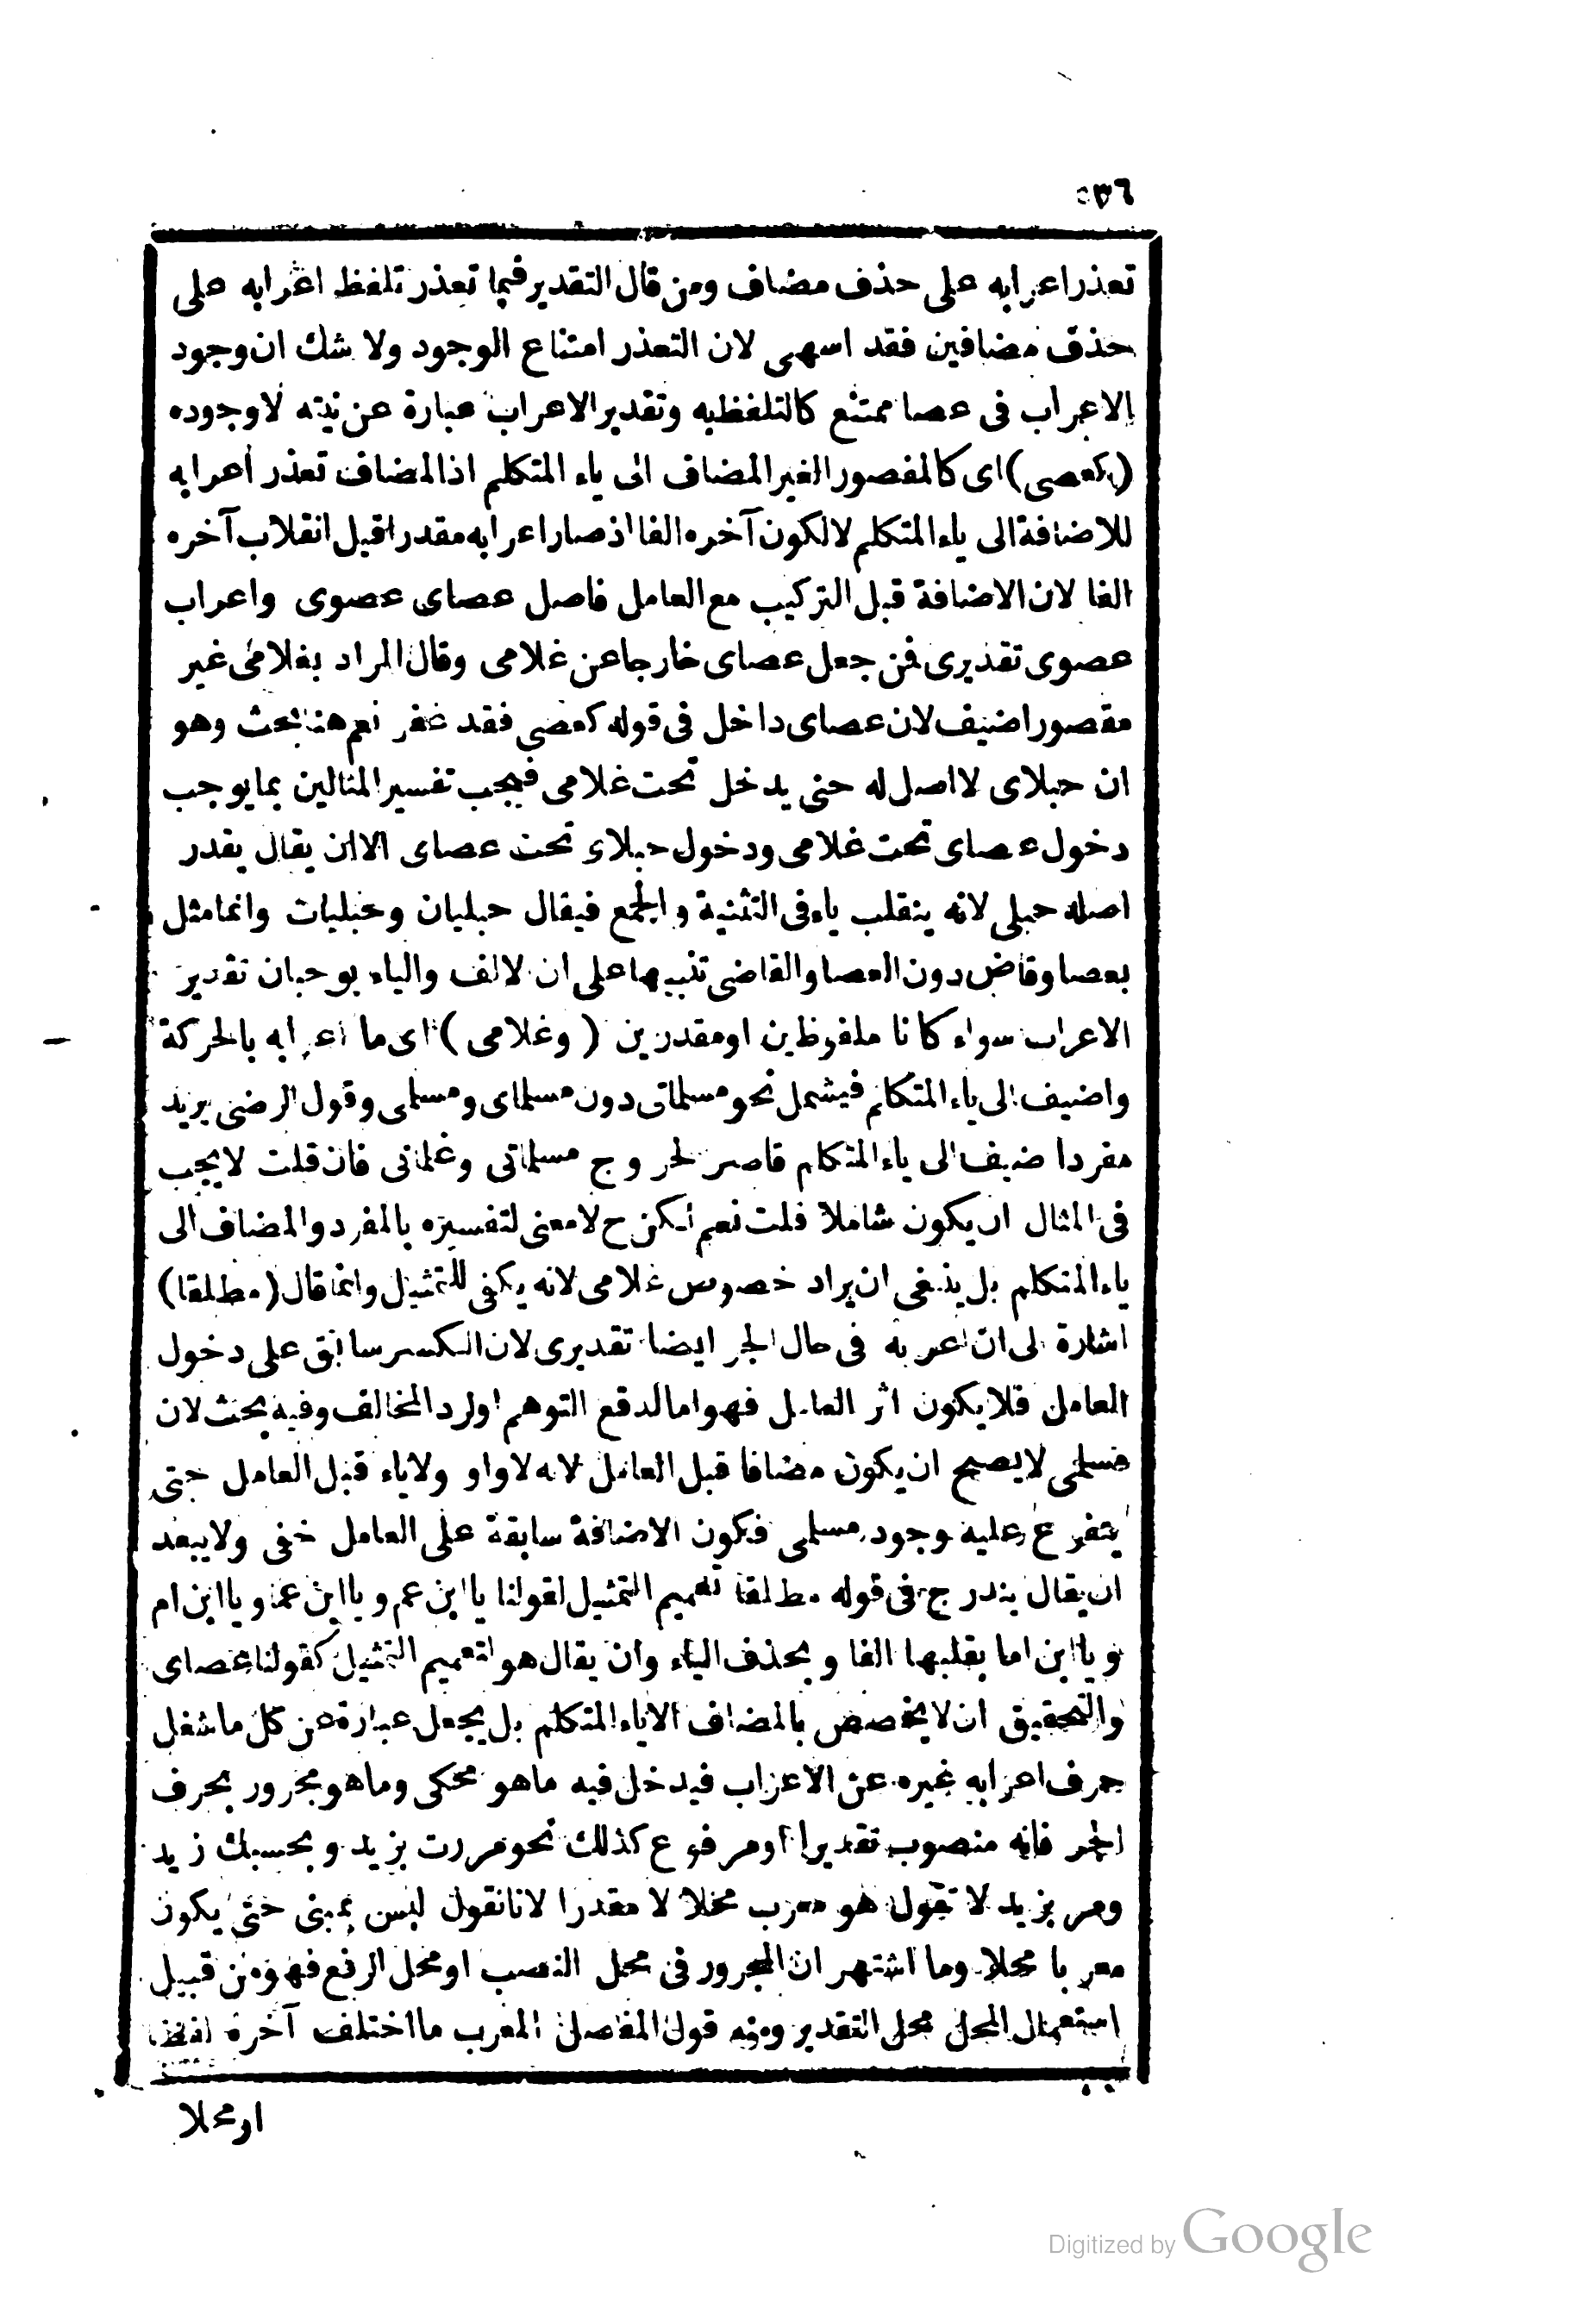 ٥٣٦
تعذر اعرابه على حذف مضاف ومن قال التقدير فيما تعذر تلفظ اعرابه على
حذف مضافين فقد اسهى لان التعذر امتناع الوجود ولا شك ان وجود
الاعراب فى عصا ممتنع كالتلفظ به وتقدير الاعراب عبارة عن نيته لا وجوده
(كعصى) اى كالمقصور الغير المضاف الى ياء المتكلم اذ المضاف تعذر اعرابه
للاضافة الى ياء المتكلم لا لكون آخره الفا اذ صار اعرابه مقدرا قبل انقلاب آخره
الفا لان الاضافة قبل التركيب مع العامل فاصل عصاى عصوى واعراب
عصوى تقديرى فمن جعل عصاى خارجا عن غلامى وقال المراد بغلامى غير
مقصور اضيف لان عصاى داخل فى قوله كعصى فقد غفر نعم هنا بحث وهو
ان حبلاى لا اصل له حتى يدخل تحت غلامى فيجب تفسير المثالين بما يوجب
دخول عصاى تحت غلامى ودخول حبلاى تحت عصاى الا ان يقال يقدر
اصله حبلى لانه ينقلب ياء فى التثنية والجمع فيقال حبليان وحبليات وانما مثل
بعصا وقاض دون العصا والقاضى تنبيها على ان الالف والياء يوجبان تقدير
الاعراب سواء كانا ملفوظين او مقدرين (وغلامى) اى ما اعرابه بالحركة
واضيف الى ياء المتكلم فيشمل نحو مسلماتى دون مسلماى ومسلمى وقول الرضى يريد
مفردا ضيف الى ياء المتكلم قاصر لخروج مسلماتى وغلمانى فان قلت لا يجب
فى المثال ان يكون شاملا قلت نعم لكن ح لا معنى لتفسيره بالمفرد والمضاف الى
ياء المتكلم بل ينبغى ان يراد خصوص غلامى لانه يكفى للتمثيل وانما قال (مطلقا)
اشارة الى ان اعرابه فى حال الجر ايضا تقديرى لان الكسر سابق على دخول
العامل فلا يكون اثر العامل فهو اما لدفع التوهم او لرد المخالف وفيه بحث لان
مسلمى لا يصح ان يكون مضافا قبل العامل لانه لا واو ولا ياء قبل العامل حتى
يتفرع عليه وجود مسلمى فكون الاضافة سابقة على العامل خفى ولا يبعد
ان يقال يندرج فى قوله مطلقا تعميم التمثيل لقولنا يا ابن عم ويا ابن عما ويا ابن ام
ويا ابن اما بقلبها الفا وبحذف الياء وان يقال هو لتعميم التمثيل كقولنا عصاى
والتحقيق ان لا يخصص بالمضاف الا ياء المتكلم بل يجعل عبارة عن كل ما شغل
حرف اعرابه غيره عن الاعراب فيدخل فيه ما هو محكى وما هو مجرور بحرف
الجر فانه منصوب تقديرا او مرفوع كذلك نحو مررت بزيد وبحسبك زيد
ومر بزيد لا تقول هو معرب محلا لا مقدرا لانا نقول ليس بمبنى حتى يكون
معربا محلا وما اشتهر ان المجرور فى محل النصب او محل الرفع فهو من قبيل
استعمال المحل محل التقدير ومنه قول المفاصل المعرب ما اختلف آخره لفظا
او محلا
Digitized by Google